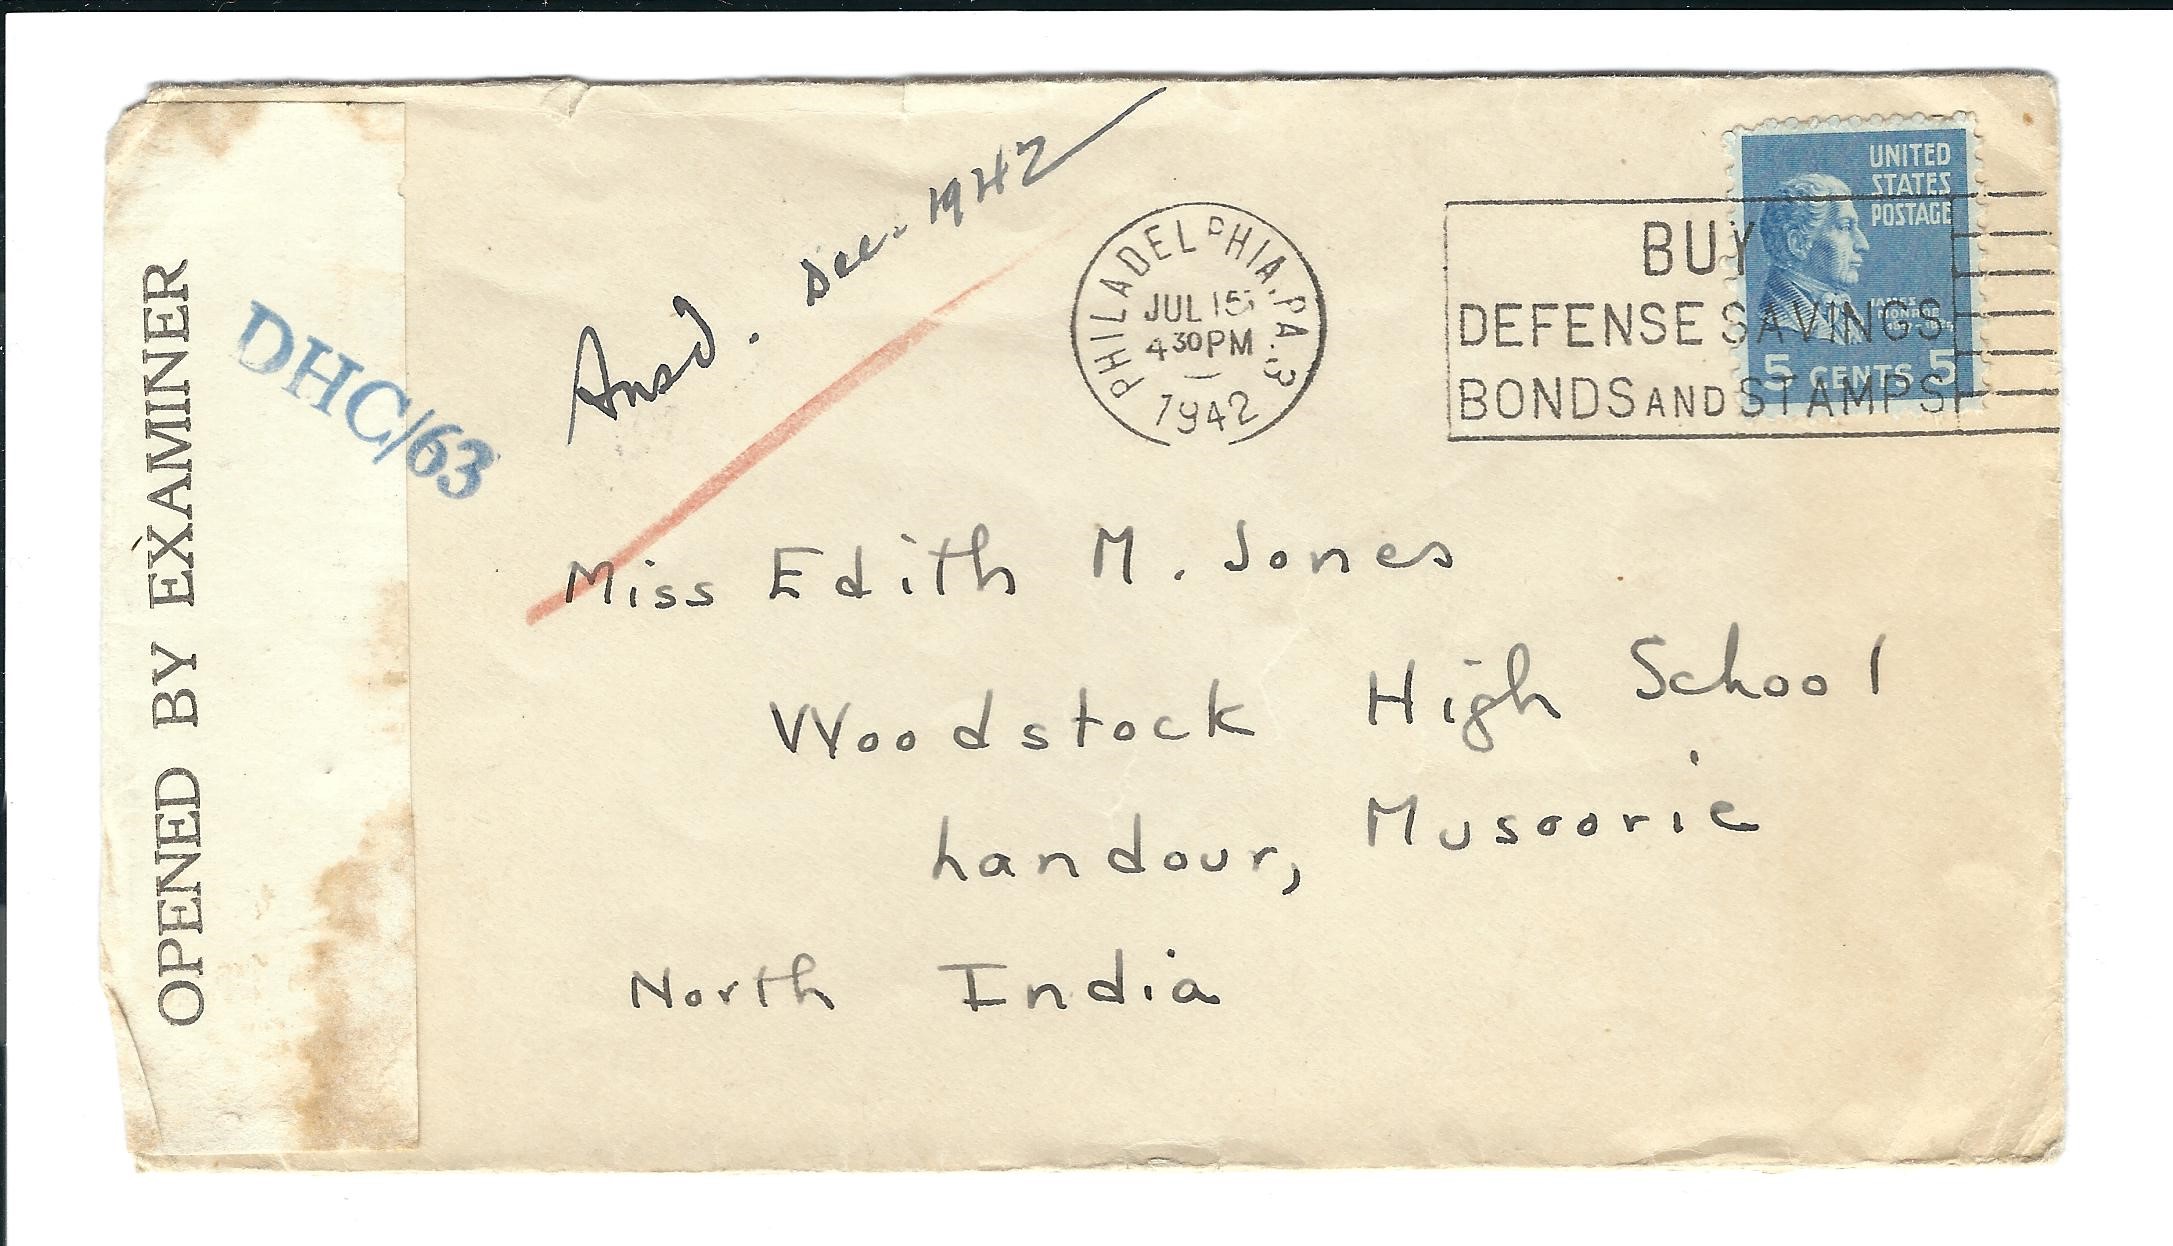 OPENED BY EXAMINER
DHC/63
Ansd. Dec. 1942
PHILADELPHIA, PA. 3
JUL 15
4 30 PM
1942
BUY
DEFENSE SAVINGS
BONDS AND STAMPS
UNITED
STATES
POSTAGE
JAMES
MONROE
5 CENTS 5
Miss Edith M. Jones
Woodstock High School
Landour, Musoorie
North India